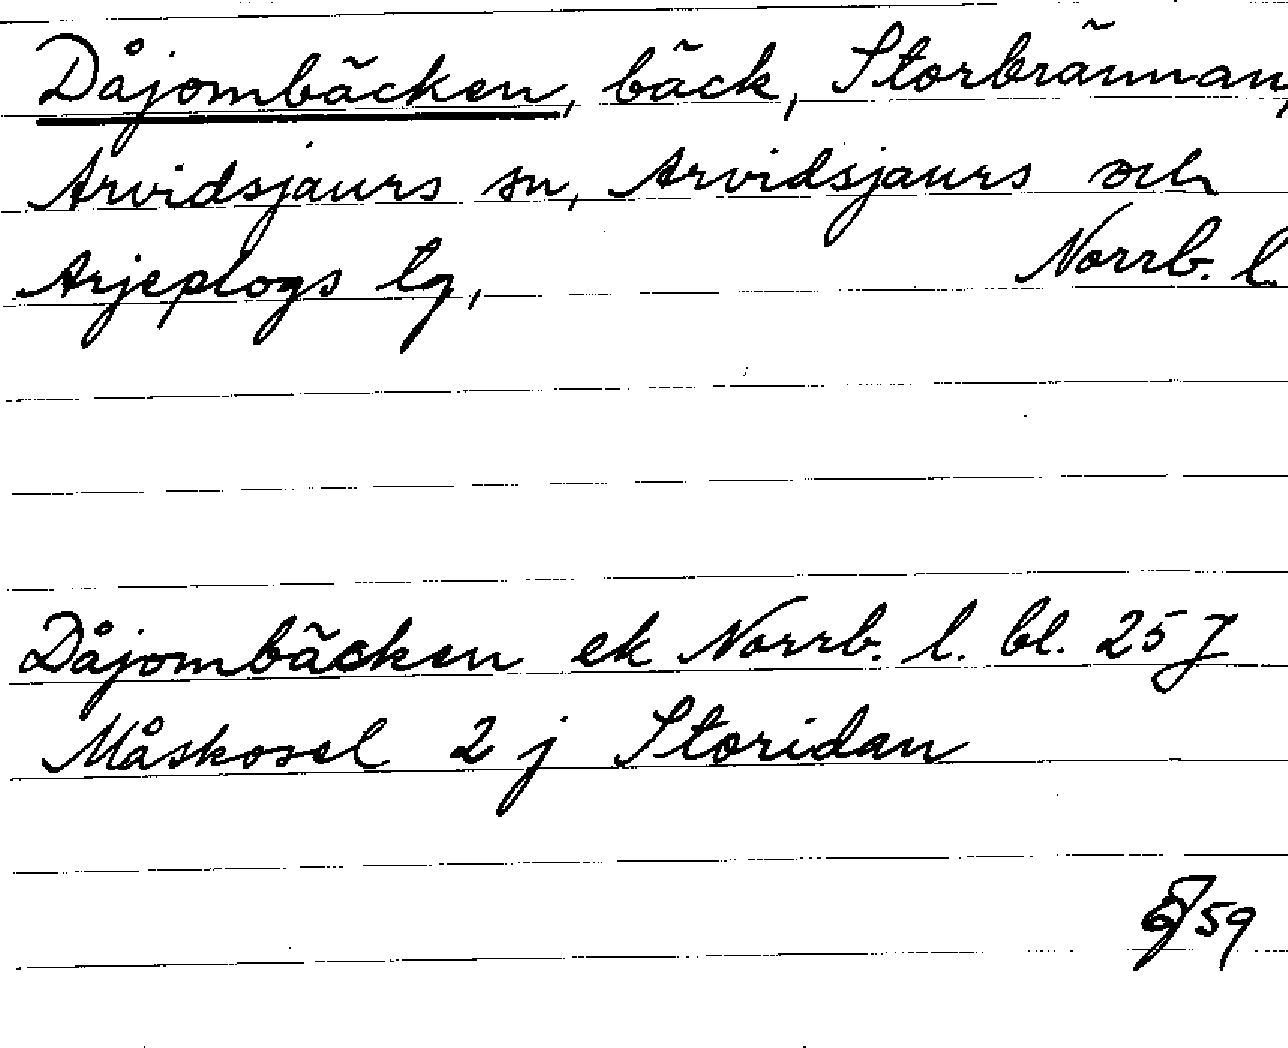 Dåjombäcken, bäck, Storbrännan,
Arvidsjaurs sn, Arvidsjaurs och
Arjeplogs tg, Norrb. l.
Dåjombäcken ek Norrb. l. bl. 25 J
Måskosel 2 j Storidan
59